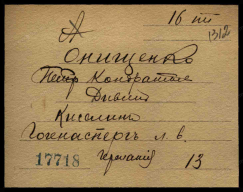 16 пт
1312
Онищенко
Петр Кондратов
Дивин
Кисилин
Гогенасперг л. в.
17718 Германія 13